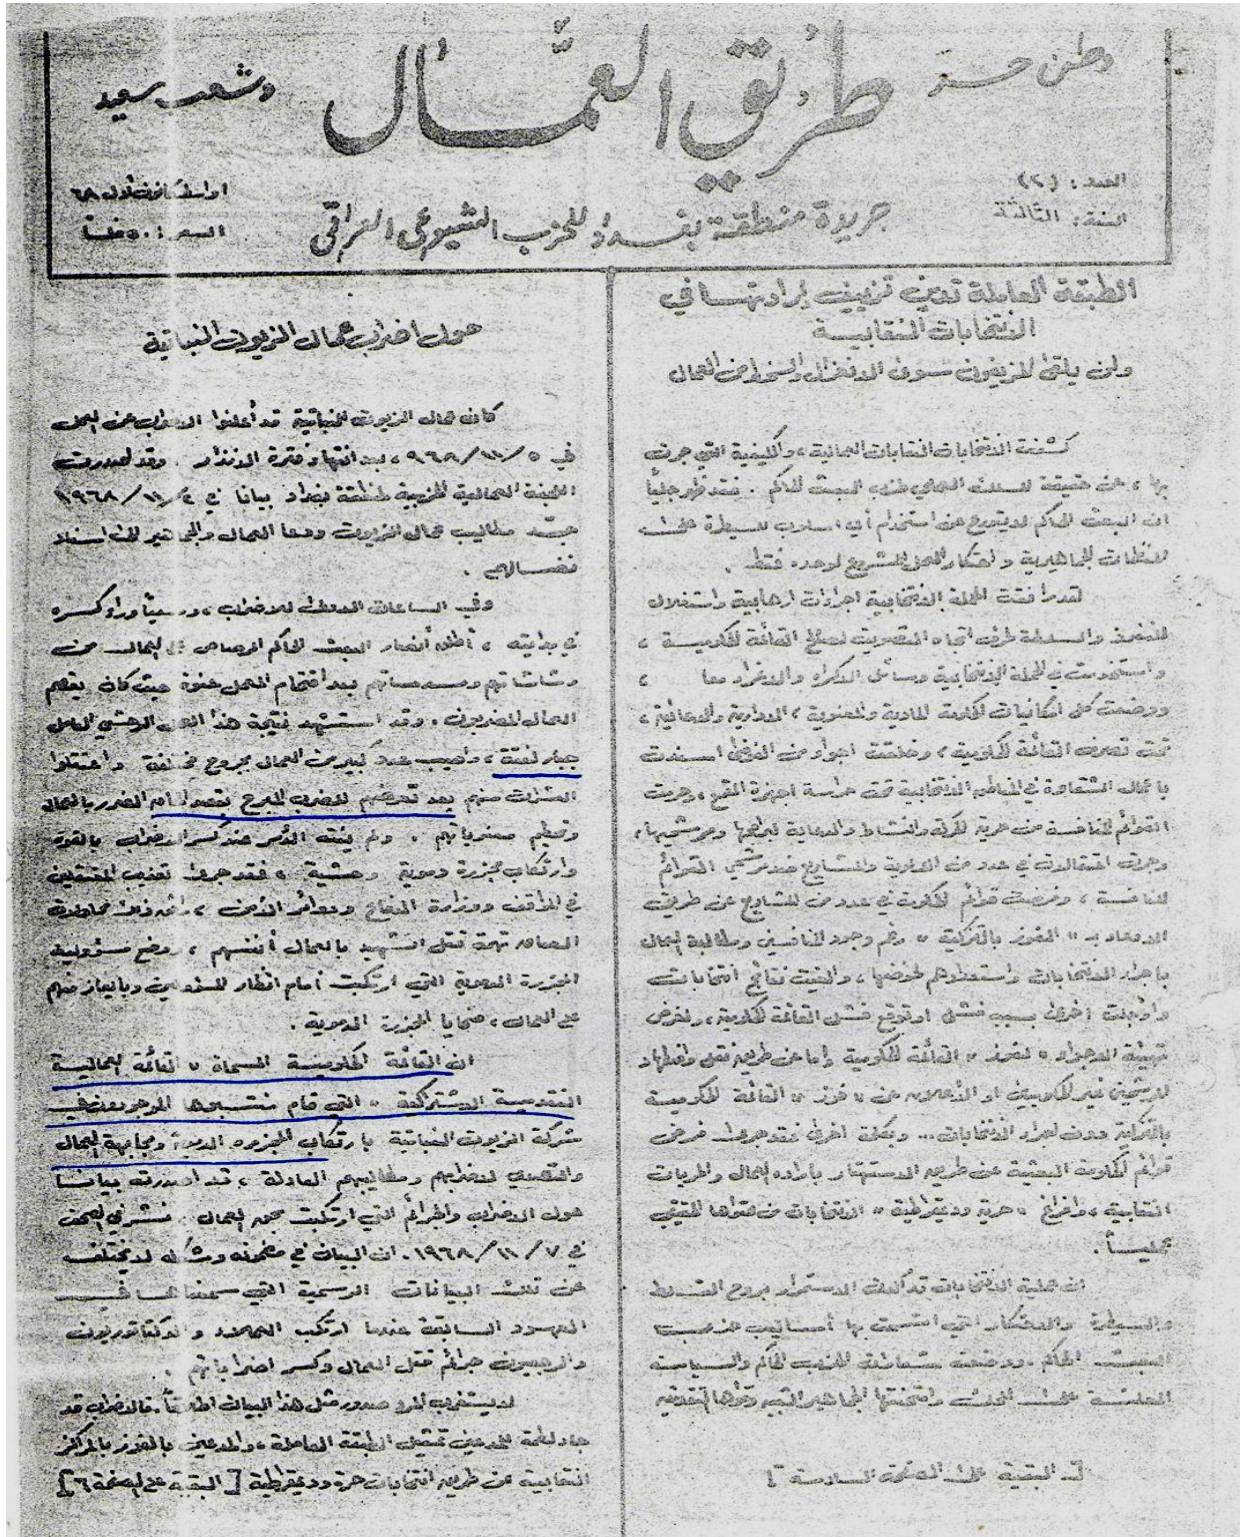 وطن حر
طريق العمال
وشعب سعيد
العدد: (٢)
السنة: الثالثة
جريدة منطقة بغداد للحزب الشيوعي العراقي
اواسط كانون اول ٦٨
السعر: ٥٠ فلساً
الطبقة العاملة تدين تزييف إرادتها في
الانتخابات النقابية
ولن يلقى المزيفون سوى الانعزال والسخط من العمال
كشفت الانتخابات النقابات العمالية، والكيفية التي جرت
بها، عن حقيقة المسلك العملي لحزب البعث الحاكم. فقد ظهر جلياً
ان البعث الحاكم لا يتورع عن استخدام أي اسلوب للسيطرة على
المنظمات الجماهيرية واحتكار العمل المشروع لوحده فقط.
لقد رافقت الحملة الانتخابية اجراءات ارهابية واستغلال
للنفوذ والسلطة حرف اتجاه التصويت لصالح القائمة الحكومية،
واستخدمت في الحملة الانتخابية وسائل الاكراه والاغراء معا،
ووضعت كل امكانيات الحكومة المادية والمعنوية، الادارية والدعائية،
تحت تصرف القائمة الحكومية، وخلقت اجواء من الفوضى اسندت
باعمال الشقاوة في المناطق الانتخابية تحت حراسة اجهزة القمع، وحرمت
القوائم المنافسة من حرية الحركة والنشاط والدعاية لبرامجها ومرشحيها،
وجرت اعتقالات في عدد من الالوية والمشاريع ضد مرشحي القوائم
المنافسة، وفرضت قوائم الحكومة في عدد من المشاريع عن طريق
الادعاء بـ "الفوز بالتزكية" رغم وجود المنافسين ومطالبة العمال
باجراء الانتخابات واستعدادهم لخوضها، والغيت نتائج انتخابات
واجلت اخرى بسبب فشل او توقع فشل القائمة الحكومية، ولغرض
تهيئة الاجواء "لفوز" القائمة الحكومية إما عن طريق نقل واضطهاد
المرشحين غير الحكوميين او الأعلان عن "فوز" القائمة الحكومية
بالتزكية دون اجراء الانتخابات... وبكلمة اخرى فقد جرى فرض
قوائم الحكومة البعثية عن طريق الاستهتار بارادة العمال والحريات
النقابية، وافراغ "حرية وديمقراطية" الانتخابات من محتواها الحقيقي
عملياً.
ان عملية الانتخابات قد أكدت الاستمرار بروح التسلط
والسيطرة والاحتكار التي اتسمت بها أساليب حزب
البعث الحاكم. ووضعت شعارات الحزب الحاكم والسياسة
المعلنة على المحك وامتحنتها الجماهير الشعبية وقواها التقدمية
[ البقية على الصفحة السادسة ]
حول اضراب عمال الزيوت النباتية
كان عمال الزيوت النباتية قد أعلنوا الاضراب عن العمل
في ٥/١١/٩٦٨، بعد انتهاء فترة الانذار. وقد اصدرت
اللجنة العمالية الحزبية لمنطقة بغداد بيانا في ٤/١١/١٩٦٨
حدد مطاليب عمال الزيوت ودعا العمال والجماهير الى اسناد
نضالهم.
وفي الساعات الاولى للاضراب، وسعياً وراء كسره
في بدايته، أطلق أنصار البعث الحاكم الرصاص على العمال من
رشاشاتهم ومسدساتهم بعد اقتحام المعمل عنوة حيث كان يعتصم
العمال المضربون. وقد استشهد نتيجة هذا العمل الوحشي العامل
جبار لفتة، واصيب عدد كبير من العمال بجروح مختلفة واعتقلوا
العشرات منهم بعد تعرضهم للضرب المبرح بقصد الحاق الضرر بالعمال
وتحطيم معنوياتهم. ولم ينته الأمر عند كسر الاضراب بالقوة
وارتكاب مجزرة دموية وحشية، فقد جرى تعذيب المعتقلين
في المواقف ووزارة الدفاع ودوائر الأمن، رافق ذلك محاولة
الصاق تهمة قتل الشهيد بالعمال أنفسهم، ووضع مسؤولية
المجزرة الدموية التي ارتكبت امام انظار المسؤولين وبايعاز منهم
على العمال، ضحايا المجزرة الدموية.
ان القائمة الحكومية المسماة "القائمة العمالية
التقدمية الاشتراكية" التي قام منتسبوها الموجودون في
شركة الزيوت النباتية بارتكاب المجزرة الدموية ومجابهة العمال
والتصدي لاضرابهم ومطاليبهم العادلة، قد اصدرت بيانا
حول الاضراب والجرائم التي ارتكبت بحق العمال. نشر في الصحف
في ٧/١١/١٩٦٨. ان البيان في مضمونه وشكله لا يختلف
عن تلك البيانات الرسمية التي سمعناها في
العهود السابقة عندما ارتكب العملاء والدكتاتوريون
والرجعيون جرائم قتل العمال وكسر اضراباتهم.
لا يستغرب المرء صدور مثل هذا البيان اطلاقاً. فالاضراب قد
جاء لطمة للمدعين تمثيل الطبقة العاملة، والمدعين بالفوز بالمراكز
النقابية عن طريق انتخابات حرة وديمقراطية [ البقية على الصفحة ٦ ]